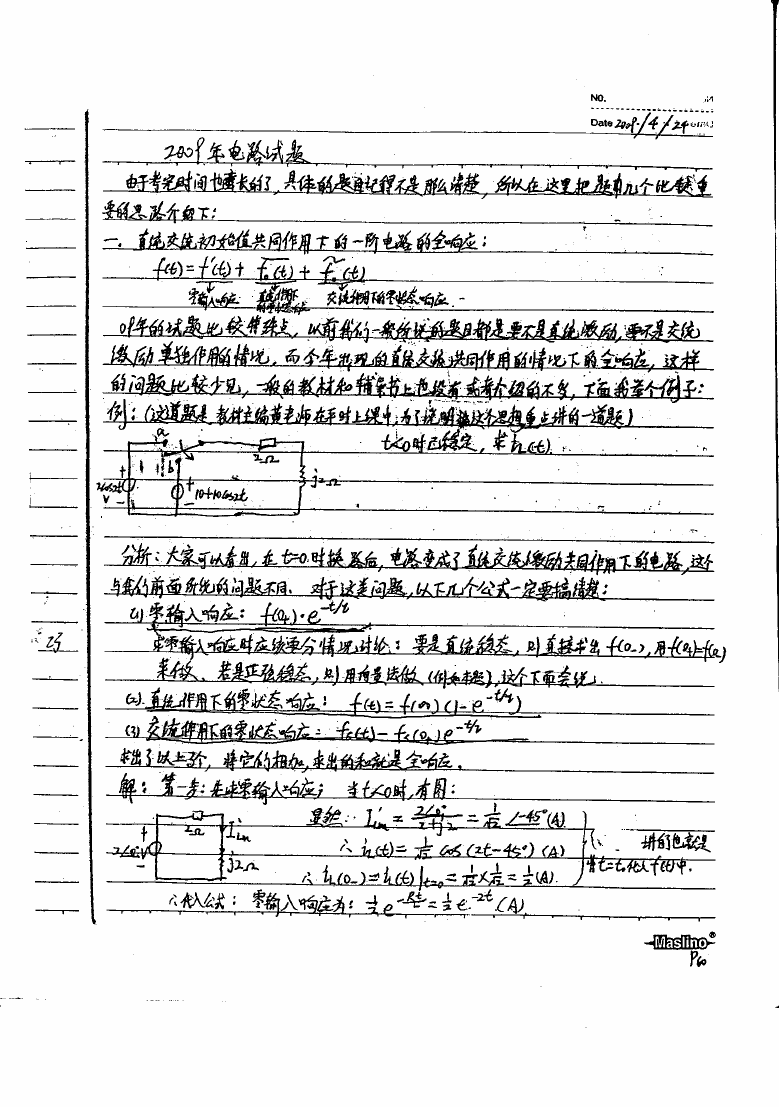 NO.
Date 2009./4/24
2009年电路试题
由于考完时间也蛮长的了,具体的题目记得不是那么清楚,所以在这里把题中几个比较重
要的思路介绍下:
一. 直流交流初始值共同作用下的一阶电路的全响应:
f(t)=f'(t)+ f̄₀(t) + f̃₀(t)
零输入响应 直流作用下的零状态响应 交流作用下的零状态响应.
09年的试题比较特殊点,以前我们一般所说的题目都是要不是直流激励,要不是交流
激励单独作用的情况,而今年出现的直流交流共同作用的情况下的全响应,这样
的问题比较少见,一般的教材和辅导书上也没有或者介绍的不多,下面我举个例子:
例:(这道题是教材主编黄老师在平时上课中,为了说明这个思想重点讲的一道题)
t<0时已稳定,求iL(t).
a
b
2Ω
j2Ω
2cos2t
V
10+10cos2t
分析:大家可以看出,在t=0时换路后,电路变成了直流交流激励共同作用下的电路,这个
与我们前面所说的问题不同. 对于这类问题,以下几个公式一定要搞清楚:
(1) 零输入响应: f(0₊)·e^(-t/τ)
求零输入响应时应该要分情况讨论:要是直流稳态,则直接求出f(0₋),用f(0₊)=f(0₋)
来做、若是正弦稳态,则用相量法做(例如本题),这个下面会说.
(2). 直流作用下的零状态响应: f(t)=f(∞)(1-e^(-t/τ))
(3) 交流作用下的零状态响应: fs(t)-fs(0₊)e^(-t/τ)
求出了以上3个,将它们相加,求出的和就是全响应.
解:第一步:先求零输入响应; 当t<0时,有图:
2Ω
I'Lm
j2Ω
2∠0°V
显然: I'Lm = 2∠0°/(2+j2) = 1/√2 ∠-45° (A)
∴ iL(t)= 1/√2 cos(2t-45°) (A)
∴ iL(0₋)=iL(t)|t=0 = 1/√2 × 1/√2 = 1/2 (A).
将t=t₀代入f(t)中.
∴代入公式: 零输入响应为: 1/2 e^(-Rt/L) = 1/2 e^(-2t) (A)
23
Maslino®
P60